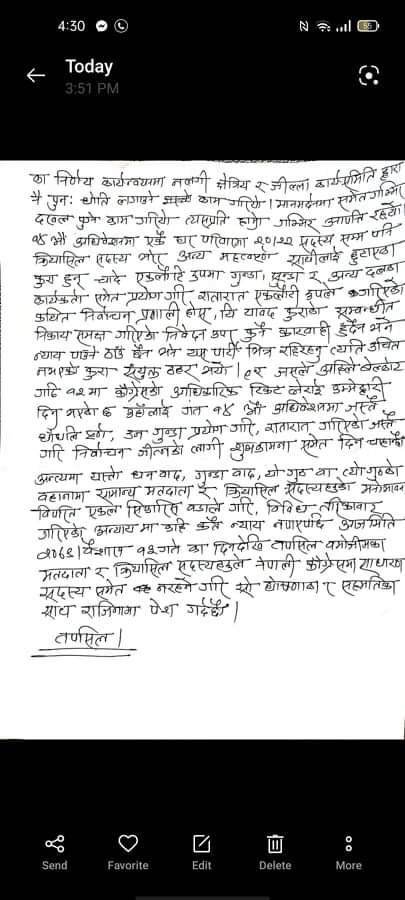 4:30
55
Today
3:51 PM
का निर्णय कार्यान्वयनमा नलगी क्षेत्रिय र जील्ला कार्यसमिति द्वारा
नै पुन: धोति लगाउने काम गरियो। मानमर्दनमा समेत गम्भिर
दखल पुग्ने काम गरियो त्यसप्रति हाम्रो गम्भिर आपत्ति रहेको।
१४ औं अधिवेशनमा एकै घर परिवारमा २०।२२ सदस्य सम्म पनि
क्रियासिल सदस्य भोर अन्य महत्वपूर्ण साथीलाई हुटाएको
कुरा हुन् चाहे एकलौटी रुपमा गुण्डा, र अन्य दलका
कार्यकर्ता समेत प्रयोग गरि रातारात एकलौटी रुपले गरिएको
कथित निर्वाचन प्रणाली होस्, यि यावद कुराको सम्बन्धीत
निकाय समक्ष गरिएको निवेदन उपर कुनै कारवाही हुँदैन भने
न्याय पाउने ठाउँ छैन भने यस पार्टी भित्र रहिरहनु त्यति उचित
नभएको कुरा संयुक्त ठहर भयो। जसले
गरि ७२ मा काँग्रेसको आधिकारिक टिकट उम्मेद्वारी
दिनु भएको छ उहाँलाई गत १४ औं अधिवेशनमा जस्तै
गुण्डा प्रयोग गरि, रातारात गरिएको जस्तै
गरि निर्वाचन जीत्नको लागी शुभकामना समेत दिन चहान्छौं
अन्त्यमा यस्तो धनवाद, गुण्डा वाद, यो गुठ वा त्यो गुठको
वहानामा सामान्य मतदाता र क्रियासिल सदस्यहरुको
विपरित एकल सिफारिस वडाले गरि, विविध तरिकाबाट
गरिएको अन्याय मा कहि कतै न्याय नपाएपछि आज मिति
२०७९।वैशाख १२ गते का दिनदेखि तपसिल बमोजीमका
मतदाता र क्रियासिल सदस्यहरुले नेपाली काँग्रेसमा साधारण
सदस्य समेत नरहने गरि यो घोषणा र सहमतिका
साथ राजिनामा पेश गर्दछौं।
तपसिल।
Send
Favorite
Edit
Delete
More